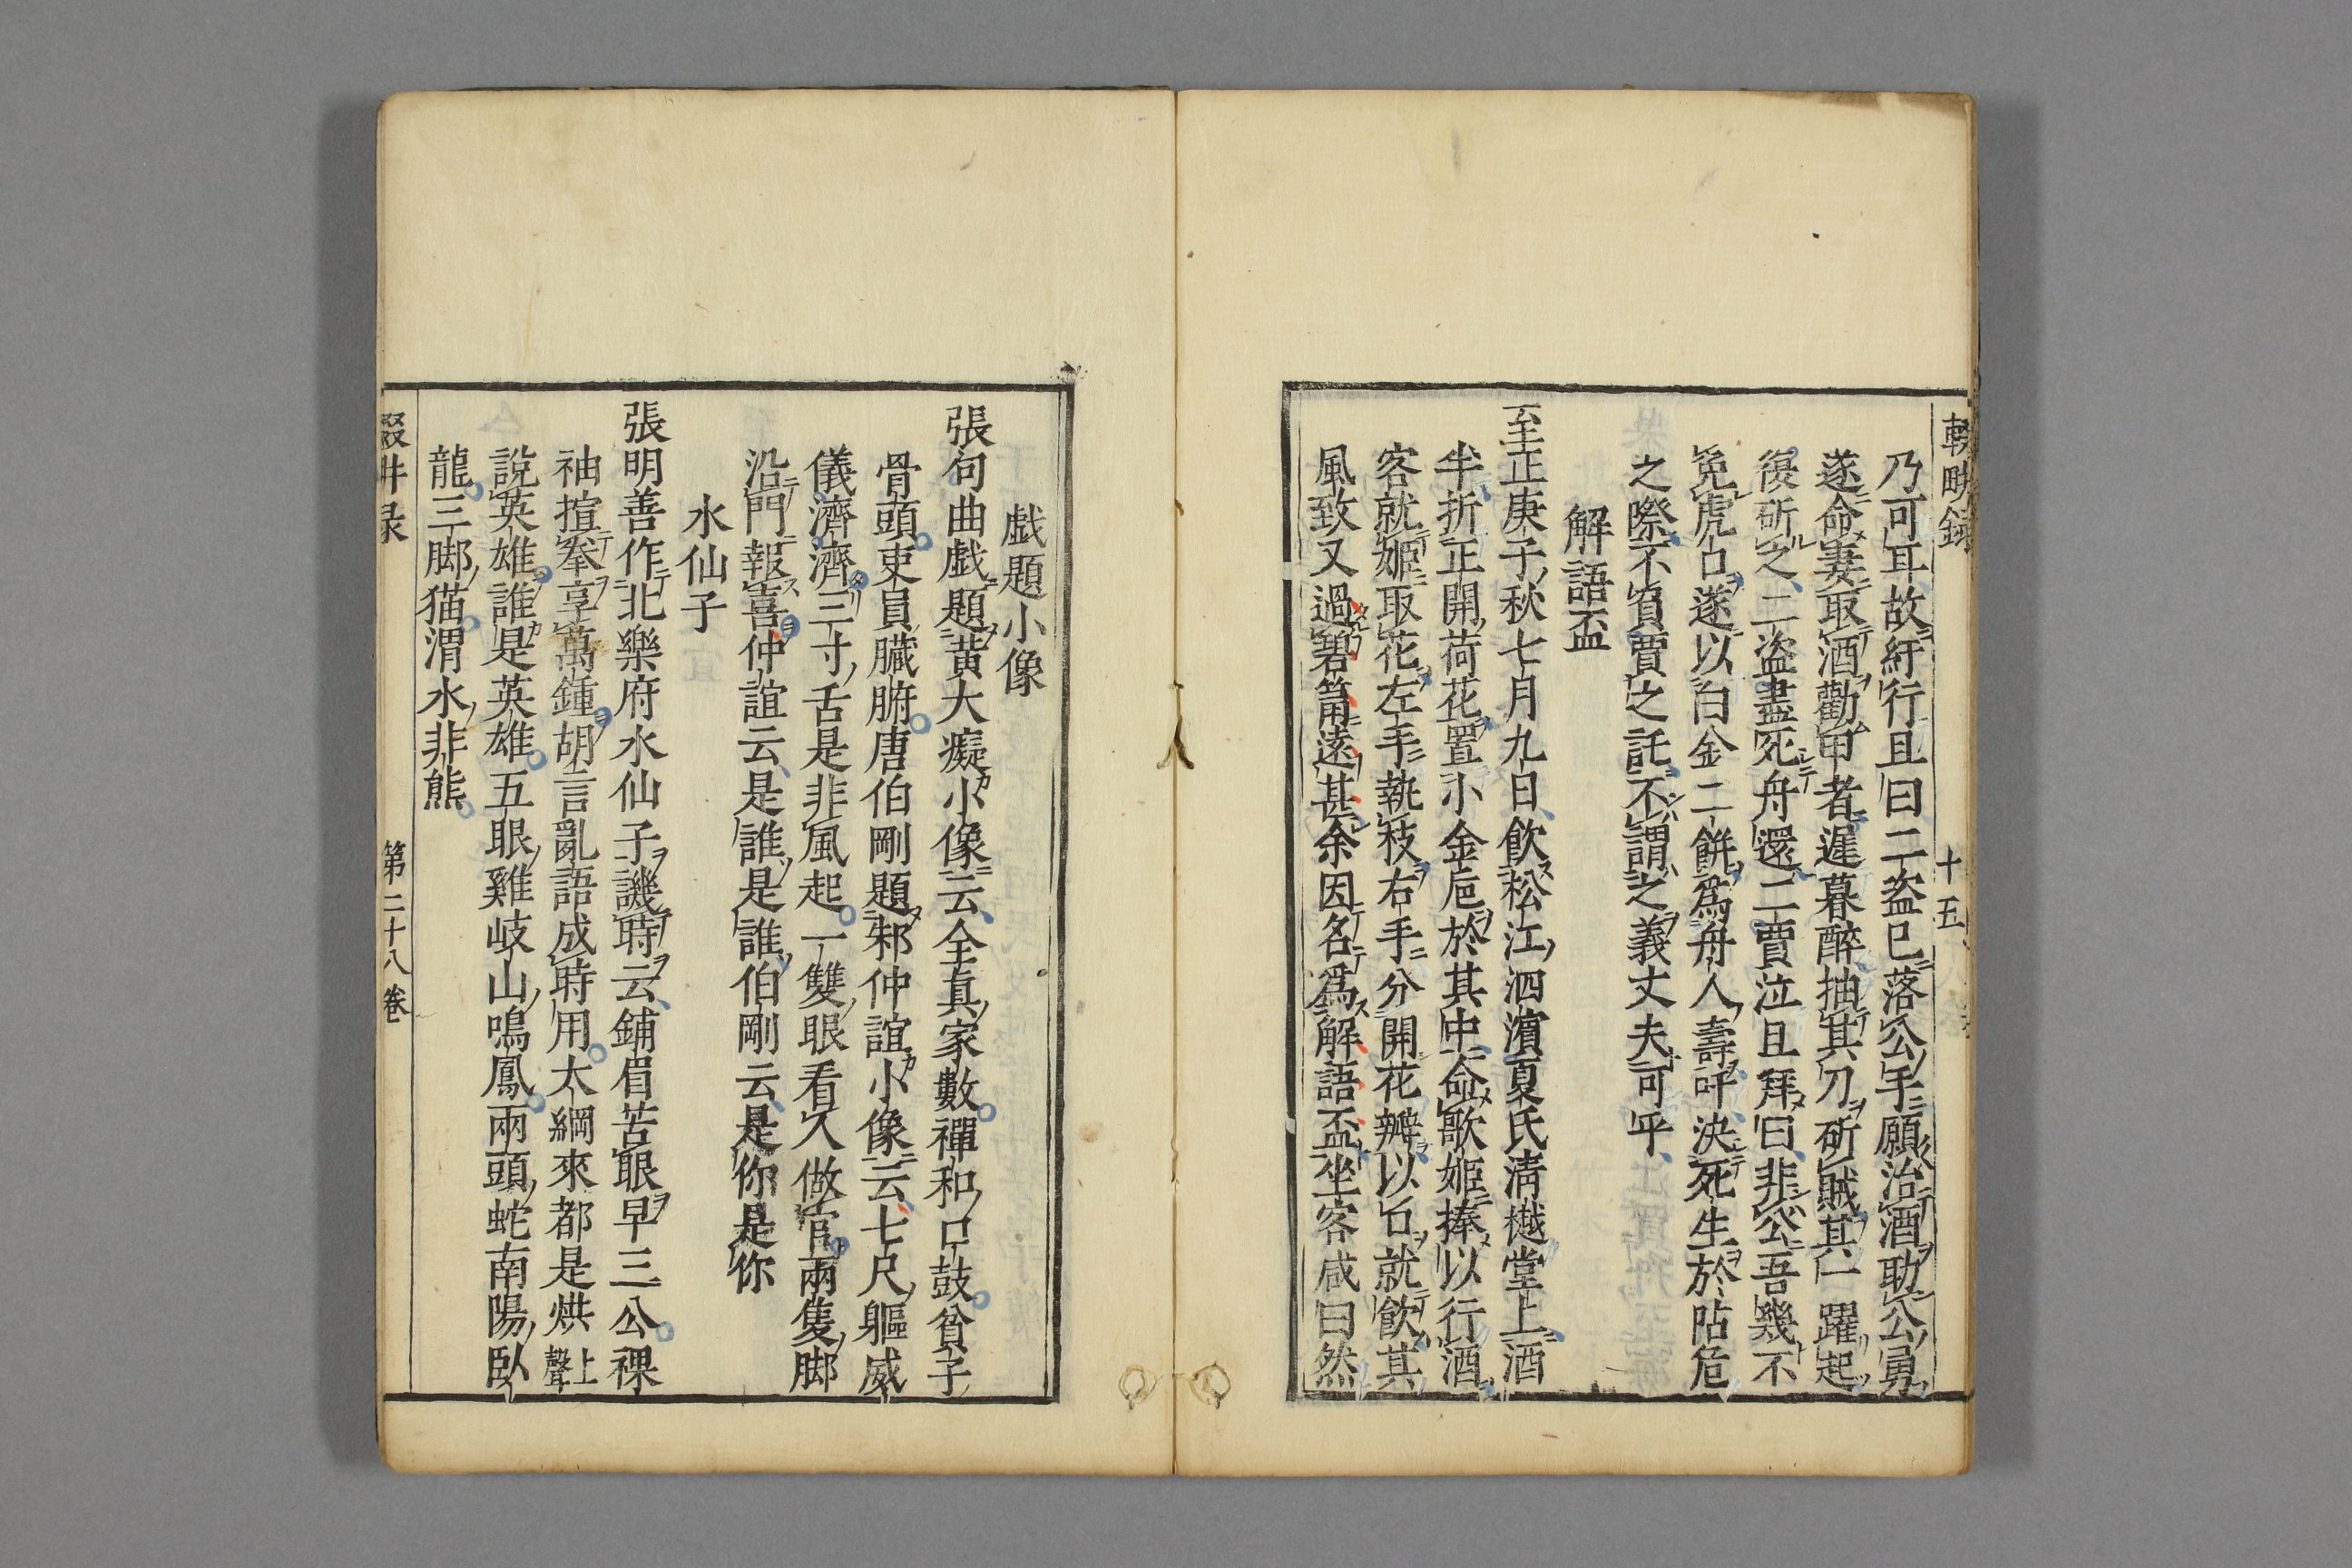 乃可耳故紆行且曰二盜已落公手願治酒助公勇
遂命妻取酒勸甲者遲暮醉抽其刀斫賊其一躍起
復斫之二盜盡死舟還二賈泣且拜曰非公吾幾不
免虎口遂以白金二餅爲舟人壽吁決死生於阽危
之際不負賈之託不謂之義丈夫可乎
解語盃
至正庚子秋七月九日飲松江泗濱夏氏清樾堂上酒
半折正開荷花置小金巵於其中命歌姬捧以行酒
客就姬取花左手執枝右手分開花瓣以口就飲其
風致又過碧筩遠甚余因名爲解語盃坐客咸曰然
十五
戯題小像
張句曲戯題黃大癡小像云全真家數禪和口鼓貧子
骨頭吏員臟腑唐伯剛題邾仲誼小像云七尺軀威
儀濟濟三寸舌是非風起一雙眼看人做官兩隻脚
沿門報喜仲誼云是誰是誰伯剛云是你是你
水仙子
張明善作北樂府水仙子譏時云鋪眉苦眼早三公裸
袖揎拳享萬鍾胡言亂語成時用大綱來都是烘上聲
說英雄誰是英雄五眼雞岐山鳴鳳兩頭蛇南陽臥
龍三脚猫渭水非熊
第二十八卷